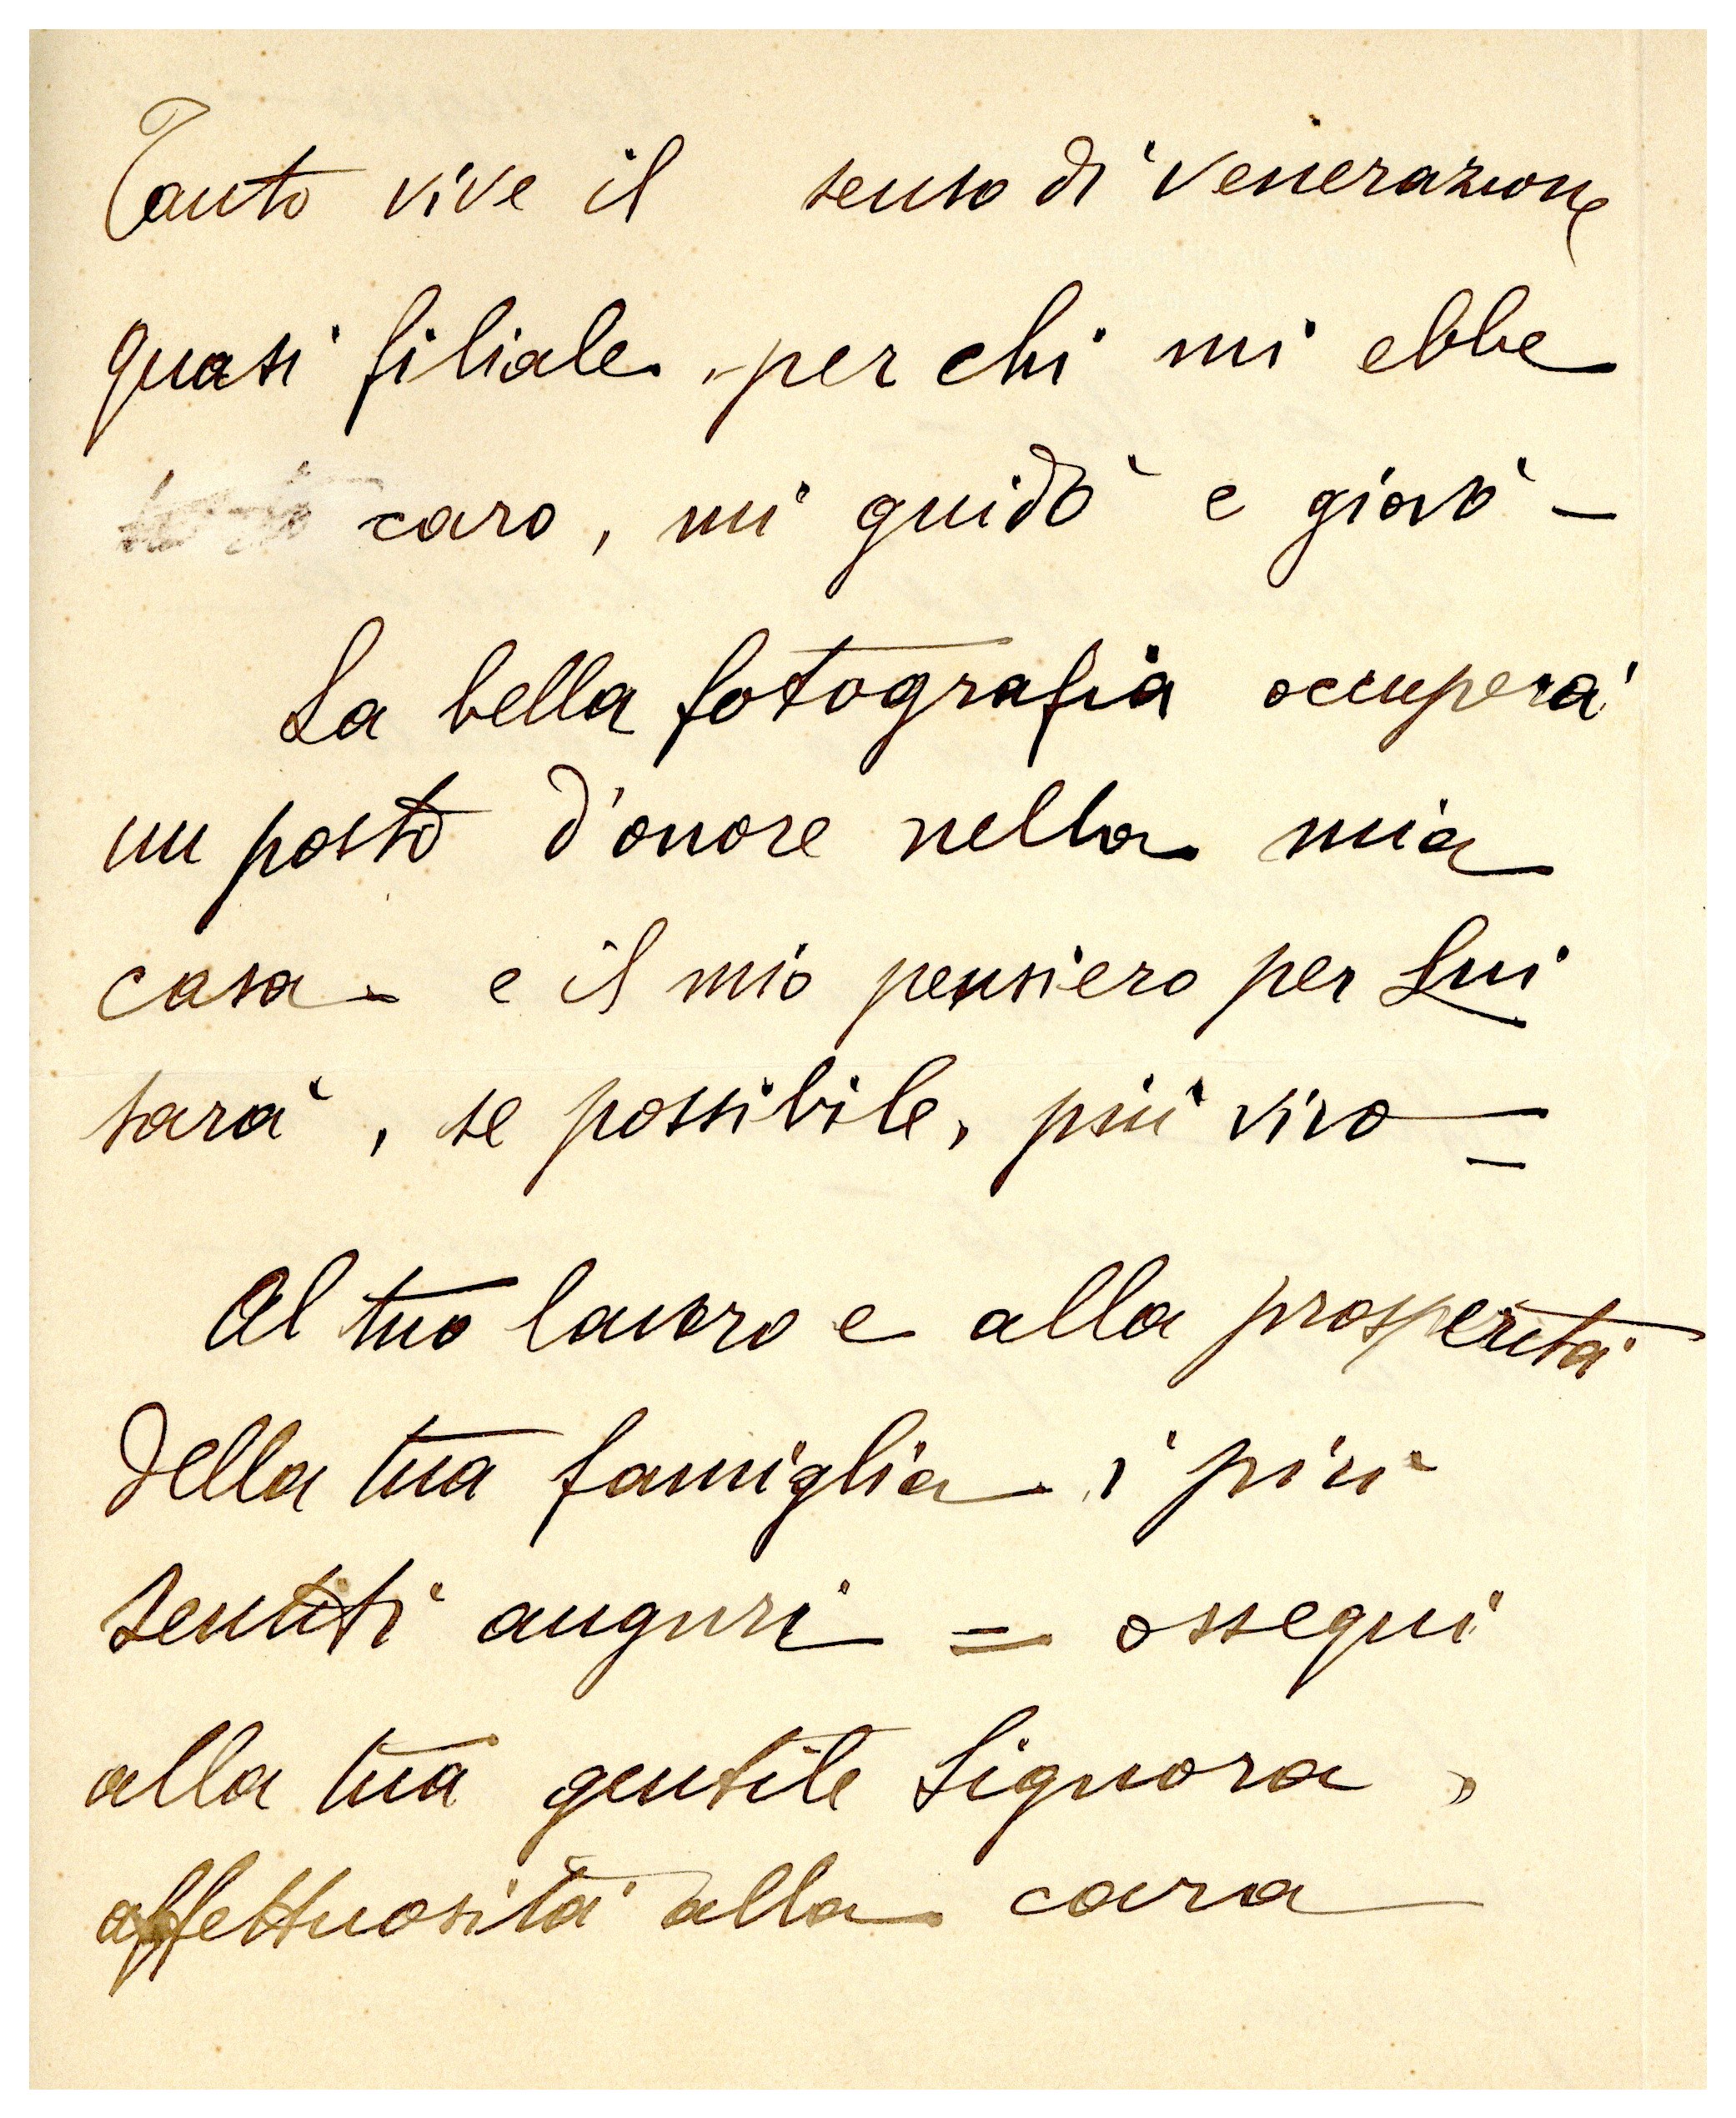 Tanto vive il senso di venerazione
quasi filiale, per chi mi ebbe
caro, mi guidò e giovò -
La bella fotografia occuperà
un posto d'onore nella mia
casa - e il mio pensiero per Lui
sarà, se possibile, più vivo -
Al tuo lavoro e alla prosperità
della tua famiglia i più
sentiti auguri = ossequi
alla tua gentile Signora,
affettuosità alla cara